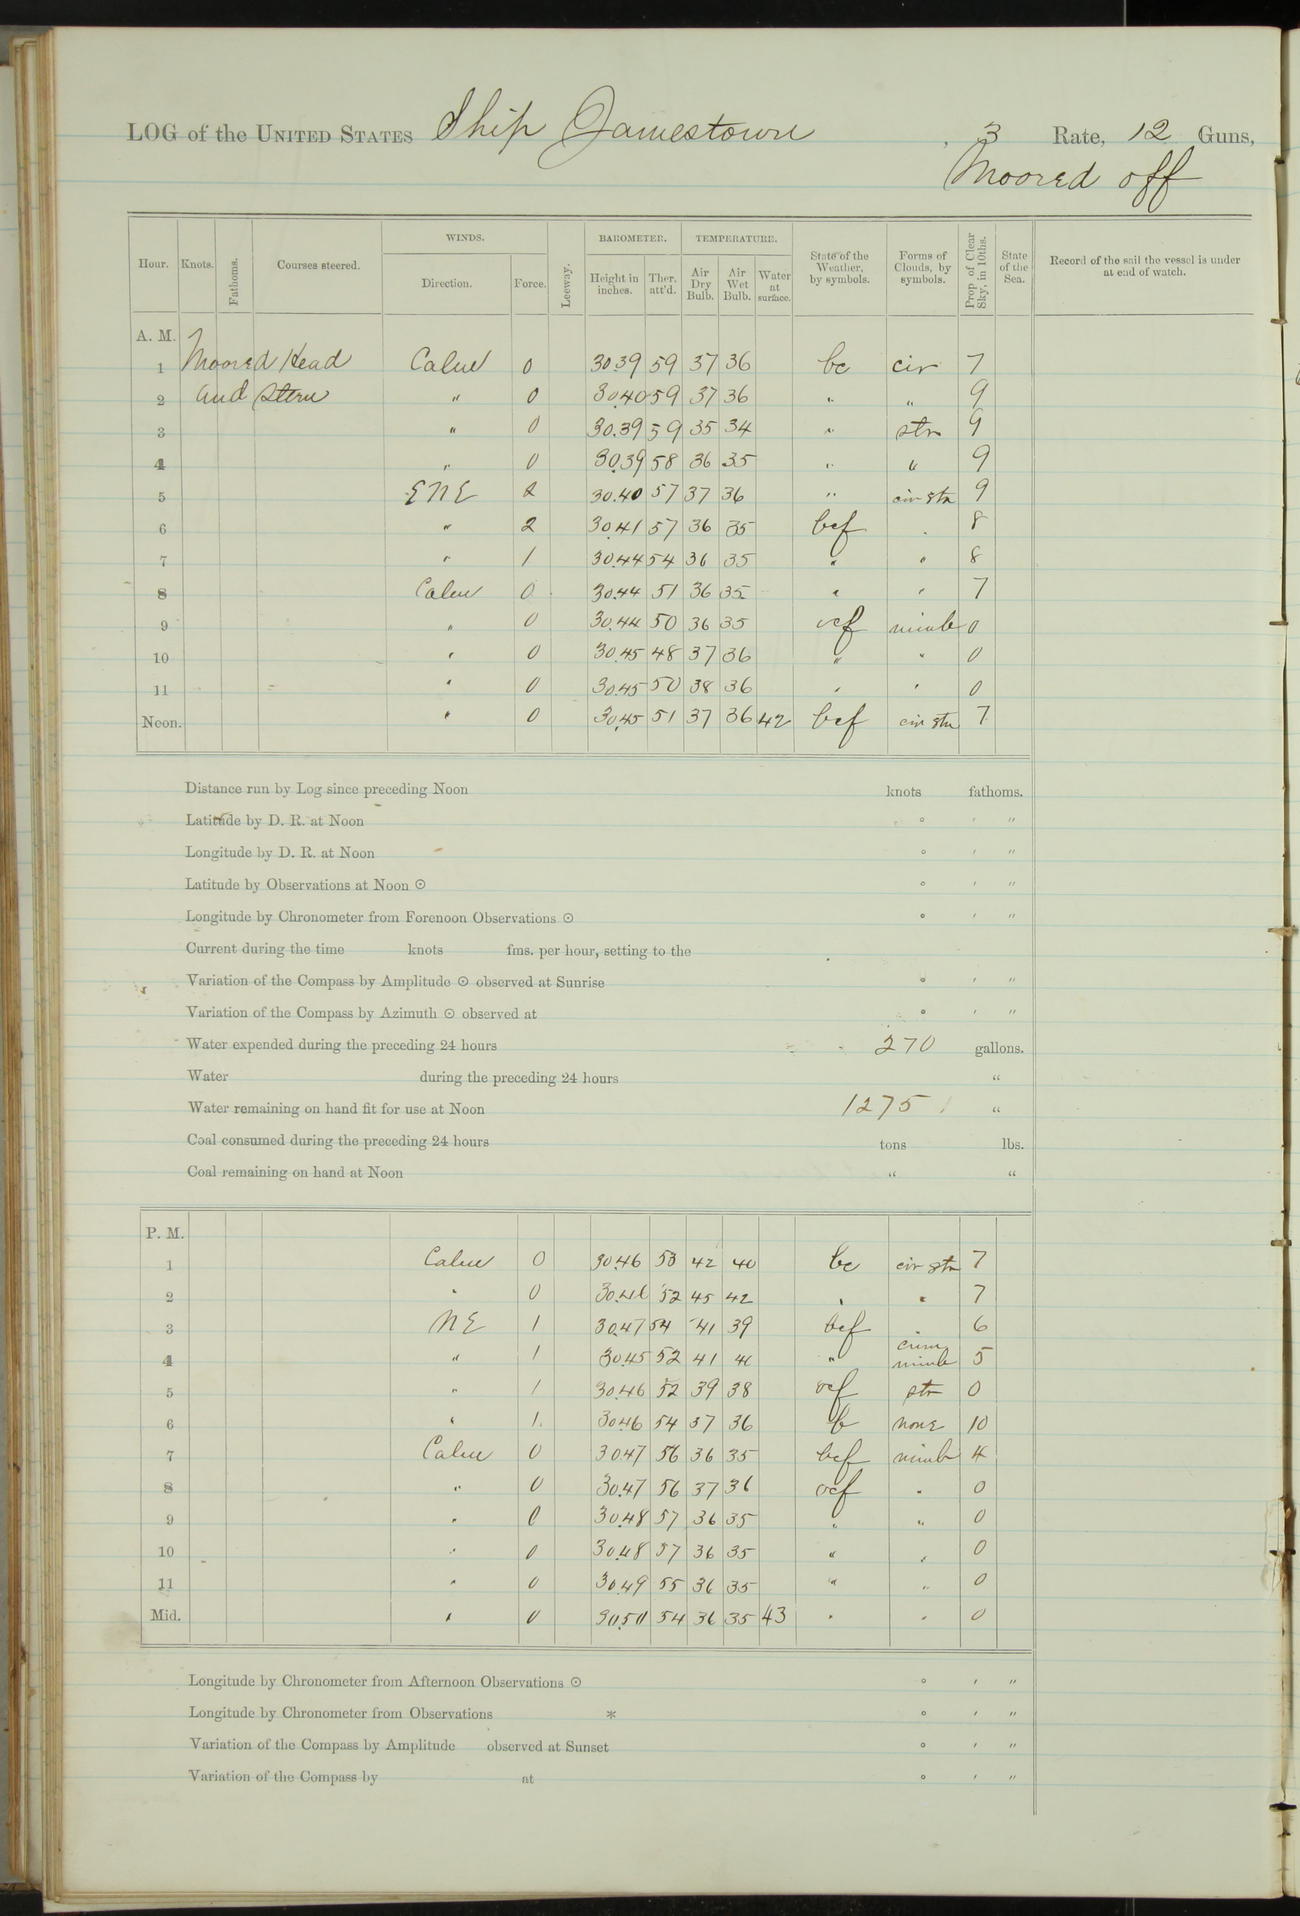 LOG of the UNITED STATES Ship Jamestown , 3 Rate, 12 Guns,
Moored off
WINDS. BAROMETER. TEMPERATURE.
Hour. Knots. Fathoms. Courses steered. Direction. Force. Leeway. Height in inches. Ther. att'd. Air Dry Bulb. Air Wet Bulb. Water at surface. State of the Weather, by symbols. Forms of Clouds, by symbols. Prop. of Clear Sky, in 10ths. State of the Sea. Record of the sail the vessel is under at end of watch.
A. M.
1 Moored Head Calm 0 30.39 59 37 36 bc cir 7
2 and Stern " 0 30.40 59 37 36 " " 9
3 " 0 30.39 59 35 34 " str 9
4 " 0 30.39 58 36 35 " " 9
5 ENE 2 30.40 57 37 36 " cir str 9
6 " 2 30.41 57 36 35 bcf " 8
7 " 1 30.44 54 36 35 " " 8
8 Calm 0 30.44 51 36 35 " " 7
9 " 0 30.44 50 36 35 ocf nimb 0
10 " 0 30.45 48 37 36 " " 0
11 " 0 30.45 50 38 36 " " 0
Noon. " 0 30.45 51 37 36 42 bcf cir str 7
Distance run by Log since preceding Noon knots fathoms.
Latitude by D. R. at Noon ° ′ ″
Longitude by D. R. at Noon ° ′ ″
Latitude by Observations at Noon ☉ ° ′ ″
Longitude by Chronometer from Forenoon Observations ☉ ° ′ ″
Current during the time knots fms. per hour, setting to the
Variation of the Compass by Amplitude ☉ observed at Sunrise ° ′ ″
Variation of the Compass by Azimuth ☉ observed at ° ′ ″
Water expended during the preceding 24 hours 270 gallons.
Water during the preceding 24 hours "
Water remaining on hand fit for use at Noon 1275 "
Coal consumed during the preceding 24 hours tons lbs.
Coal remaining on hand at Noon " "
P. M.
1 Calm 0 30.46 53 42 40 bc cir str 7
2 " 0 30.46 52 45 42 " " 7
3 NE 1 30.47 54 41 39 bcf " 6
4 " 1 30.45 52 41 40 " nimb 5
5 " 1 30.46 52 39 38 ocf str 0
6 " 1 30.46 54 37 36 b none 10
7 Calm 0 30.47 56 36 35 bcf nimb 4
8 " 0 30.47 56 37 36 ocf " 0
9 " 0 30.48 57 36 35 " " 0
10 " 0 30.48 57 36 35 " " 0
11 " 0 30.49 55 36 35 " " 0
Mid. " 0 30.50 54 36 35 43 " " 0
Longitude by Chronometer from Afternoon Observations ☉ ° ′ ″
Longitude by Chronometer from Observations * ° ′ ″
Variation of the Compass by Amplitude observed at Sunset ° ′ ″
Variation of the Compass by at ° ′ ″